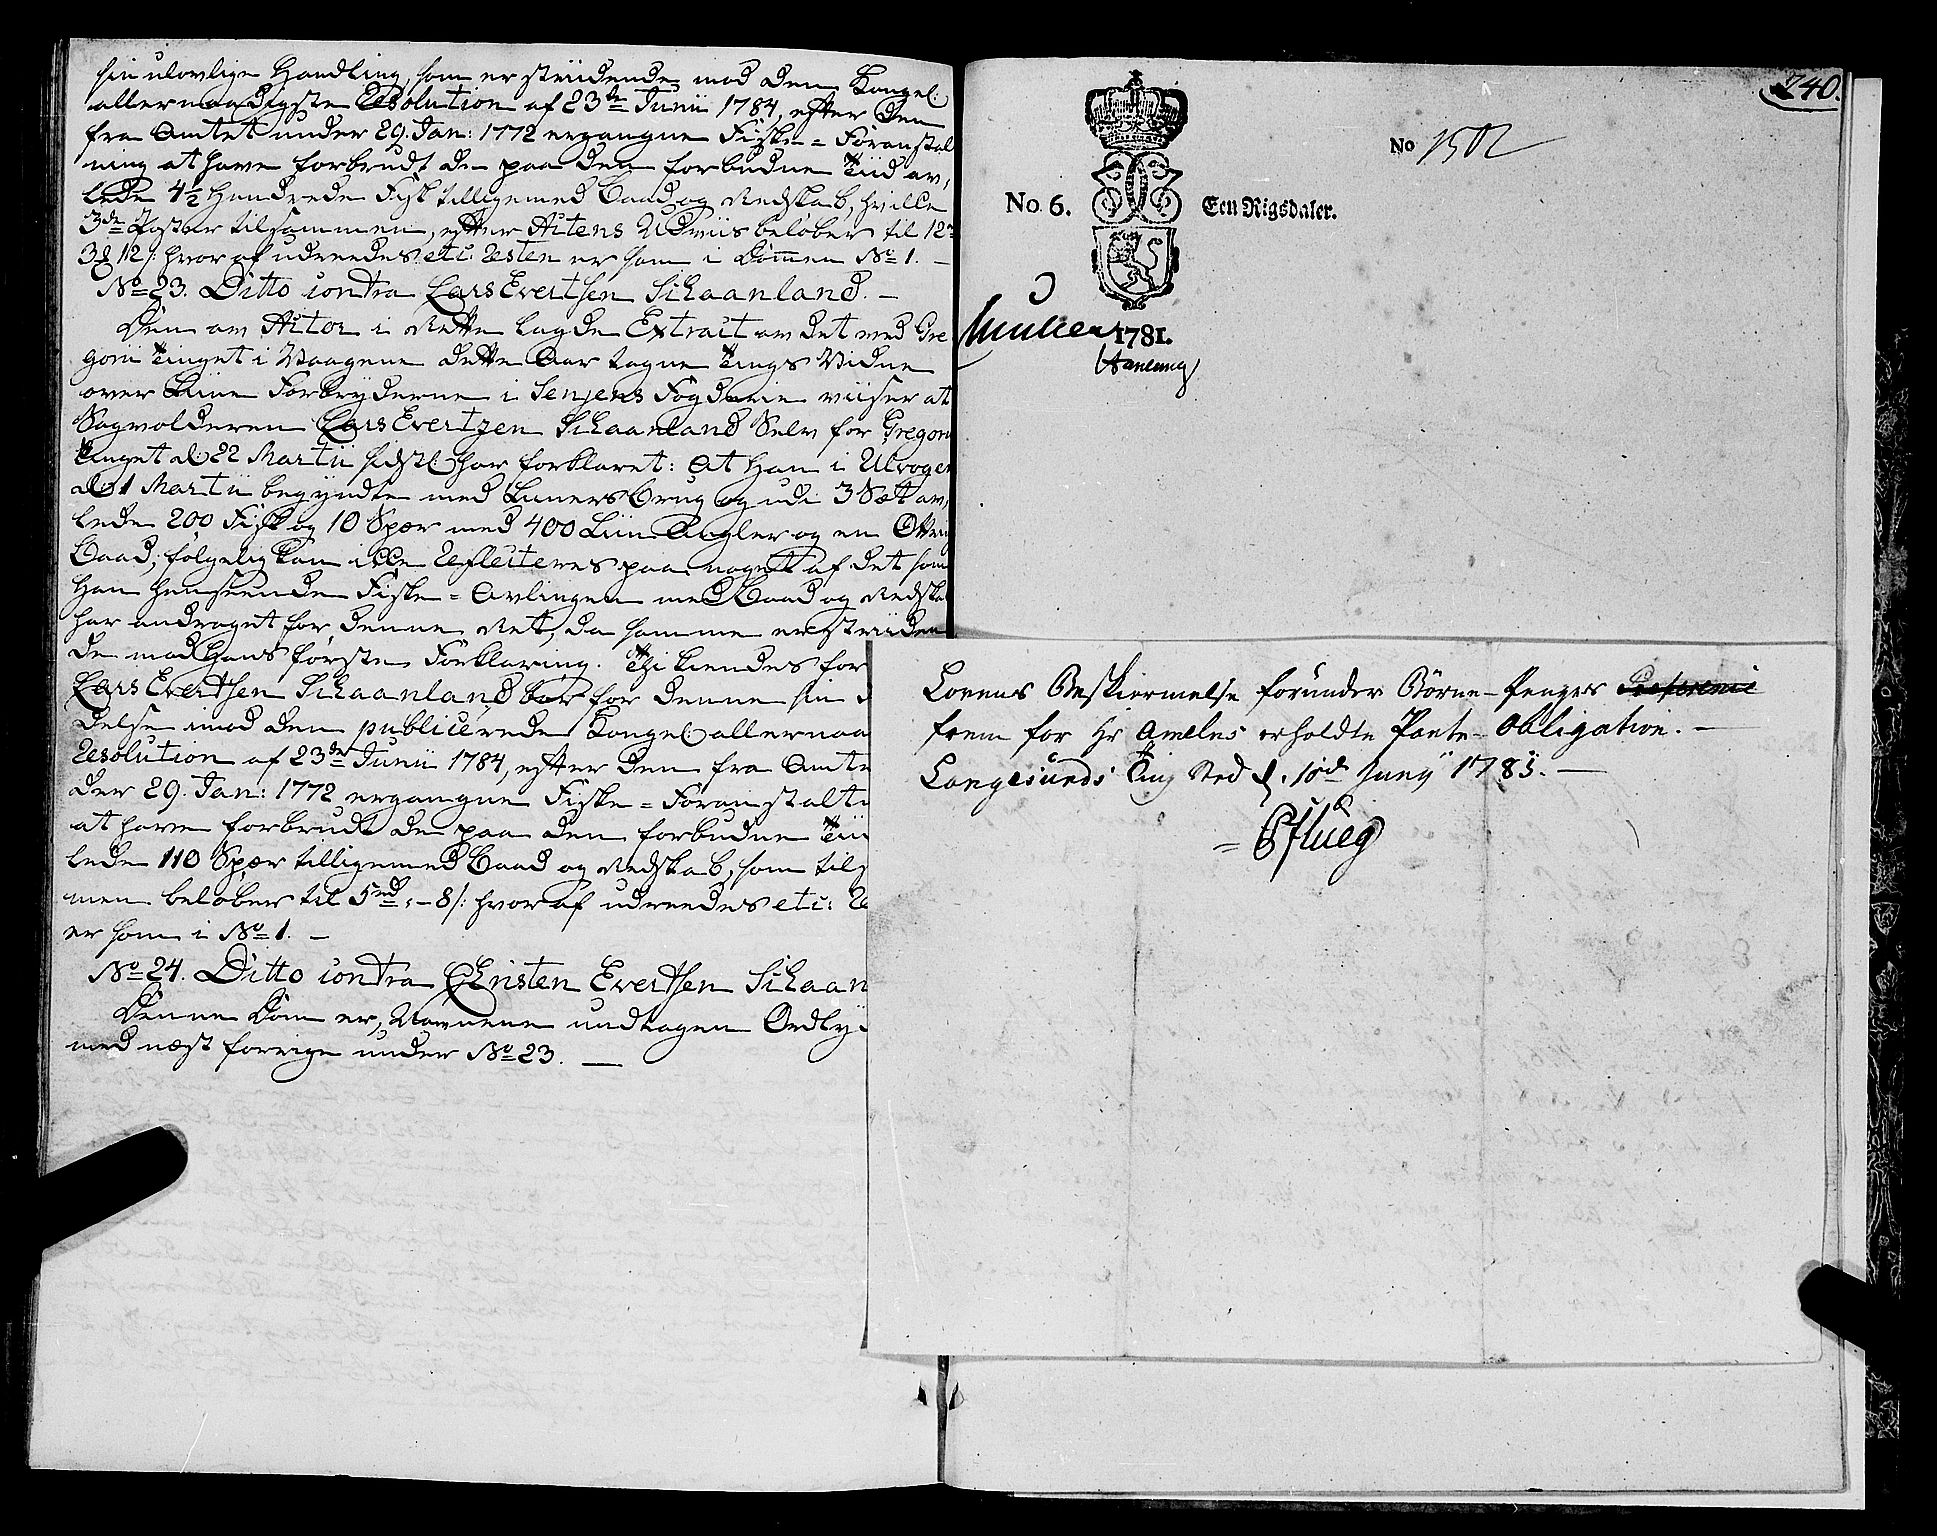 sin ulovlige Handling, som er stridende mod den Kongel:
allernaadigste Resolution af 23de Junii 1784, efter den
fra Amtet under 29. Jan: 1772 ergangne Fiske-Foranstal
ning at have forbrudt de paa den forbudne Tiid av,
lede 4½ hundrede Fisk tilligemed Baad og Redskab, hvilke
3de Poster tilsammen, efter Actens Udviis beløber til 12
3 12 s: hvoraf udreedes etc: Resten er som i Dommen No 1. –
No 23. Ditto contra Lars Evertsen Schaanland. –
Den av Actor i Rette lagde Extract av det med Gre
gorii Tinget i Vaagene dette Aar tagne Tings Vidne
over Liine Forbryderne i Senjens Fogderie viiser at
Sagvolderen Lars Evertzen Schaanland Selv for Gregorii
Tinget d: 22 Martii sidstl: har forklaret: At Han i Ulvogen
d: 1 Martii begyndte med Liiners Brug og udi 3 Sæt av,
lede 200 Fisk og 10 Spær med 400 Liin Angler og en Ottring
Baad; følgelig kan icke Reflecteres paa noget af det som
Han henseende Fiske-Avlingen med Baad og Redskab
har andraget for denne Ret, da samme er striiden
de mod Hans første Forklaring. Thi kiendes for
Lars Evertsen Schaanland bør for denne sin
delse imod den publicerede Kongel: allernaa
Resolution af 23de Junii 1784, efter den fra Amte
der 29. Jan: 1772 ergangne Fiske-Foranstaltn
at have forbrudt de paa den forbudne Tiid
lede 110 Spær tilligemed Baad og Redskab, som tils
men beløber til 5rd: – 8 s: hvoraf udreedes etc: Re
er som i No 1. –
No 24. Ditto contra Christen Evertsen Schaan
Denne Dom er, Navnene undtagen Ordly
med næst forrige under No 23. –
240.
No 1502
No. 6.
Een Rigsdaler.
1781.
Lovens Beskiermelse forunder Børne-Penges Preference
frem for Hr Amelns erholdte Pante-Obligation. –
Langesunds Ting Sted d. 10de Juny 1785. –
Pflueg